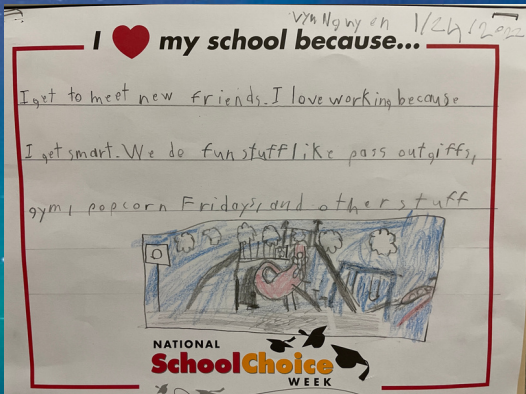 Vyn Nguyen 1/24/2022
I ❤ my school because...
I get to meet new friends. I love working because
I get smart. We do fun stuff like pass out giffs,
gym, popcorn Fridays, and other stuff
NATIONAL
SchoolChoice
WEEK